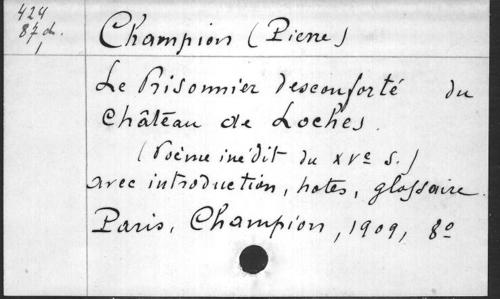 424
87 ch.
1
Champion (Pierre)
Le Prisonnier desconforté du
Château de Loches.
(Poème inédit du XVe s.)
avec introduction, notes, glossaire.
Paris, Champion, 1909, 8o